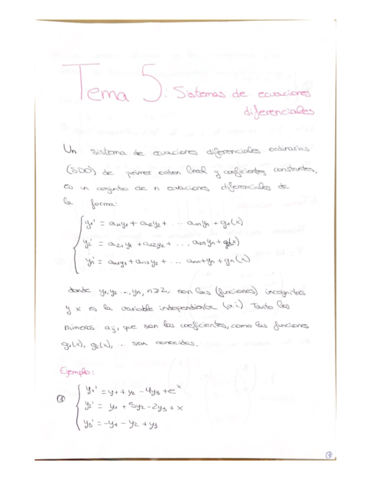 Tema 5. Sistemas de ecuaciones
diferenciales
Un sistema de ecuaciones diferenciales ordinarias
(SDO) de primer orden lineal y coeficientes constantes,
es un conjunto de n ecuaciones diferenciales de
la forma:
y₁' = a₁₁y₁ + a₁₂y₂ + ... a₁ₙyₙ + g₁(x)
y₂' = a₂₁y₁ + a₂₂y₂ + ... a₂ₙyₙ + g₂(x)
yₙ' = aₙ₁y₁ + aₙ₂y₂ + ... aₙₙyₙ + gₙ(x)
donde y₁, y₂ ... yₙ, n≥2, son las (funciones) incognitas
y x es la variable independiente (v.i) Tanto los
números aij, que son los coeficientes, como las funciones
g₁(x), g₂(x), ... son conocidas.
Ejemplo:
① y₁' = y₁ + y₂ - 4y₃ + eˣ
y₂' = y₁ + 5y₂ - 2y₃ + x
y₃' = -y₁ - y₂ + y₃